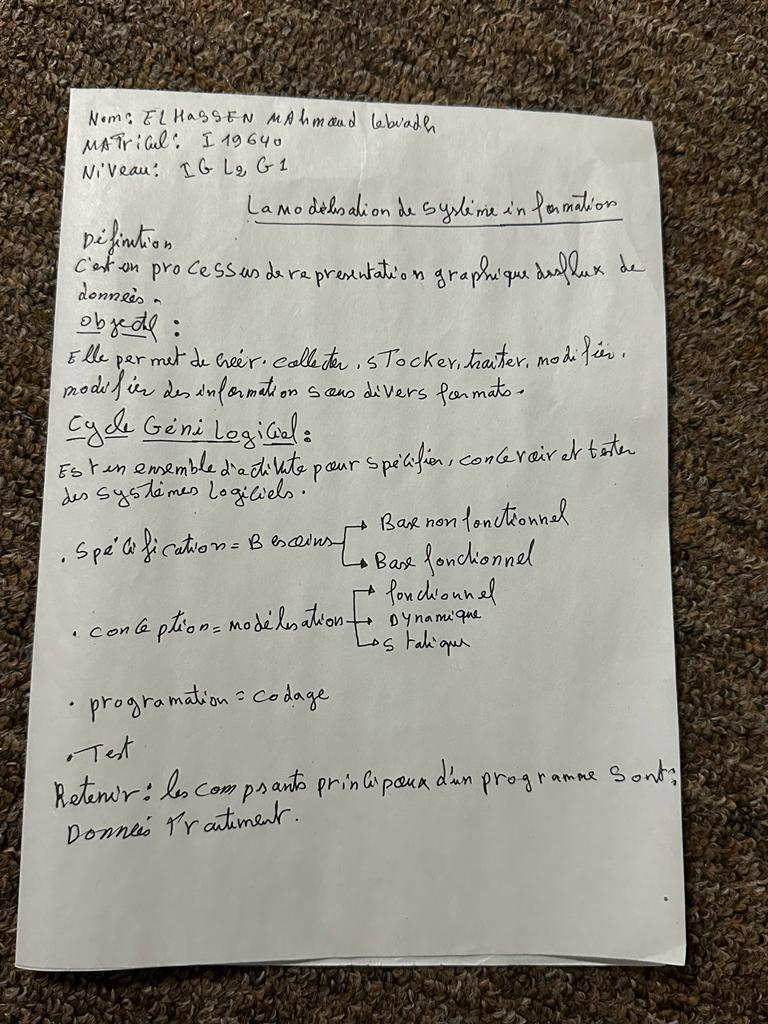 Nom: EL HASSEN MAhmoud lebuadh
MATricul: I 19640
NiVeau: IG L2, G1
La modélisation de système information
Définition
C'est un processus de representation graphique des flux de
données.
Objectif :
Elle permet de créer. collecter, sTocker, traiter, modifier.
modifier des information sous divers formats.
Cycle Géni Logiciel :
Est un ensemble d'activité pour spécifier, concevoir et tester
des systèmes logiciels.
. Spécification = Besoins
Base non fonctionnel
Base fonctionnel
. conception = modélisation
fonctionnel
Dynamique
Statique
. programation = codage
. Test
Retenir : les compsants principaux d'un programme sont :
Données Traitiment.